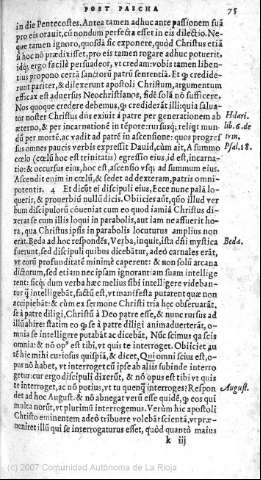 POST PASCHA 75
in die Pentecostes. Antea tamen adhuc ante passionem suã
pro eis orauit, cũ nondum perfecta esset in eis dilectio. Ne-
que tamen ignoro, quosdã sic exponere, quòd Christus etiã
si hoc nõ prædixisset, pro eis tamen rogare adhuc poterit,
idq; ergo facilè persuadeor, vt credamus vobis tamen liben-
tius propono certã sanctorũ patrũ sententiã. Et q; credide-
runt pariter, & dilexerunt apostoli Christum, argumentum
efficax est aduersus Neochristianos, fidē solã nõ sufficere.
Nos quoque credere debemus, q; crediderãt illi quia salua-
tor noster Christus dñs exiuit à patre per generationem ab
æterno, & per incarnationē in tẽpore: rursusq; reliqt mun-
dũ per mortē, ac vadit ad patrē in ascensione: quos progres-
sus omnes paucis verbis expressit Dauid, cùm ait, A summo
cœlo (cœlũ hoc est trinitatis) egressio eius, id est, incarna-
tio: & occursus eius, hoc est, ascensio vsq; ad summum eius.
Ascendit enim in cœlũ, & sedet ad dexteram, patris omni-
potentis. 4 Et dixerũt ei discipuli eius, Ecce nunc palã lo-
queris, & prouerbiũ nullũ dicis. Obiicies aũt, quo illud ver
bum discipulorũ cõueniat cum eo quod iamiã Christus di-
xerat se cum illis loqui in parabolis, aut iam ne affuerit ho-
ra, qua Christus ipsis in parabolis locuturus amplius non
erit. Beda ad hoc respondēs, Verba, inquit, ista dñi mystica
fuerunt, sed discipuli quibus dicebãtur, adeo carnales erãt,
vt eorũ profunditatē minimè caperent: & nõ solũ arcana
dictorum, sed etiam nec ipsam ignorantiam suam intellige
rent: sicq; dum verba hæc melius sibi intelligere videban-
tur q̃ intelligebãt, factũ est, vt manifesta putarent quæ non
accipiebãt: & cùm ex sermone Christi tria hæc obseruarãt,
se à patre diligi, Christũ à Deo patre esse, & nunc rursus ad
illũ abire: statim eo q; se à patre diligi animaduerterãt, o-
mnia se intelligere putabãt ac dicebãt, Nũc scimus qa scis
omnia: & nõ opº est tibi, vt quis te interroget. Obiiciet au
tē hic mihi curiosus quispiã, & dicet, Qui omnia scius est, o-
pus nõ habet, vt interroget cũ ipse ab aliis subinde interro
getur: cur ergo discipuli dixerũt, & nõ opus est tibi vt quis
te interroget, ac nõ potius, vt tu quenq̃ interroges? Respon
det ad hoc August. & nõ abnegat verũ esse quidē, q; eos qui
multa norũt, vt plurimũ interrogemus. Verùm hic apostoli
Christo eminentem adeò tribuere volebãt scientiã, vt præ-
nouerit illũ qui se interrogaturus esset, quòd quanto maius
k iij
Hilari.
lib. 6. de
trin.
Psal. 18.
Beda.
August.
(c) 2007 Comunidad Autónoma de La Rioja